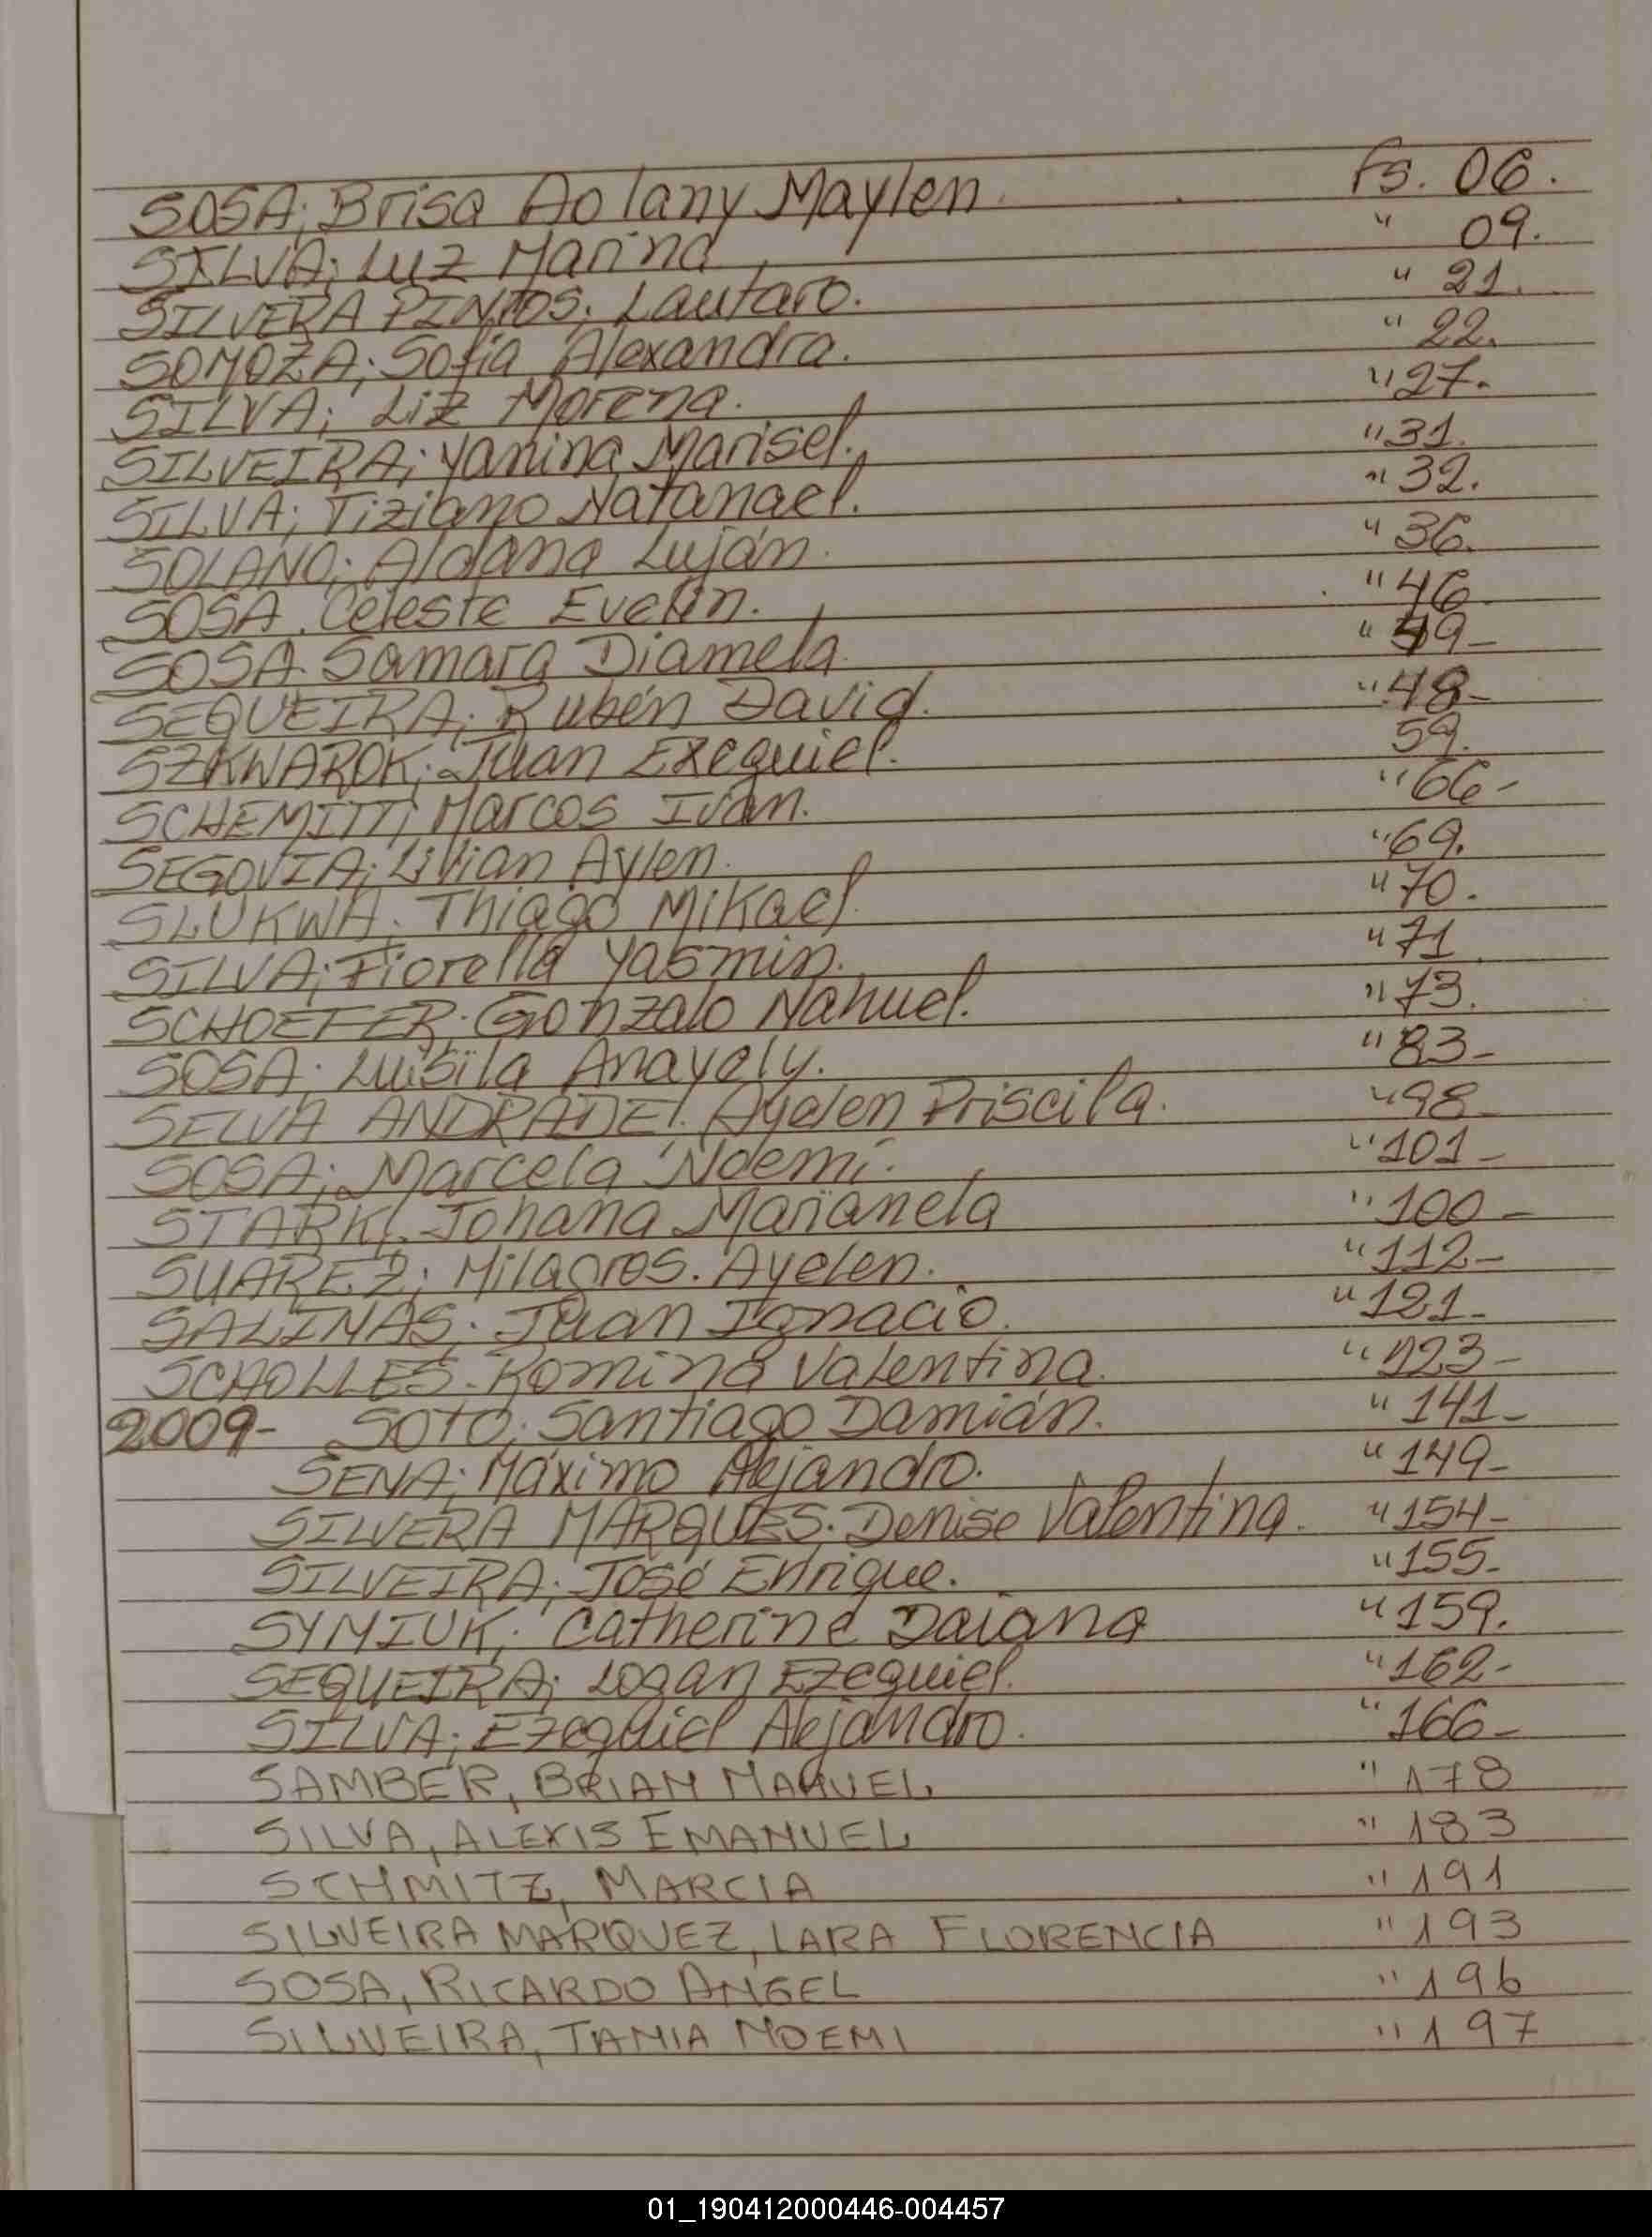 SOSA; Brisa Aolany Maylen. Fs. 06.
SILVA; Luz Marina " 09.
SILVERA PINTOS; Lautaro. " 21.
SOMOZA; Sofía Alexandra. " 22.
SILVA; Liz Morena. " 27.
SILVEIRA; Yanina Marisel. " 31.
SILVA; Tiziano Natanael. " 32.
SOLANO; Aldana Luján. " 36.
SOSA. Celeste Evelin. " 46
SOSA. Samara Diamela. " 49-
SEQUEIRA; Rubén David. " 48-
SZKWAROK; Juan Exequiel. 59.
SCHEMITT; Marcos Iván. " 66-
SEGOVIA; Livian Aylen. " 69.
SLUKWA. Thiago Mikael. " 70.
SILVA; Fiorella Yasmin. " 71
SCHOEFER; Gonzalo Nahuel. " 73.
SOSA; Luisila Anayely. " 83-
SELVA ANDRADE; Ayelen Priscila. " 98-
SOSA; Marcela Noemí. " 101-
STARK; Johana Marianela " 100-
SUAREZ; Milagros. Ayelen. " 112-
SALINAS; Juan Ignacio. " 121-
SCHOLLES. Romina Valentina. " 123-
2009- SOTO; Santiago Damián. " 141-
SENA; Máximo Alejandro. " 149-
SILVERA MARQUES; Denise Valentina. " 154-
SILVEIRA; José Enrique. " 155-
SYMIUK; Catherine Daiana " 159.
SEQUEIRA; Logan Ezequiel. " 162-
SILVA; Ezequiel Alejandro. " 166-
SAMBER, BRIAN MANUEL " 178
SILVA, ALEXIS EMANUEL " 183
SCHMITZ, MARCIA " 191
SILVEIRA MARQUEZ, LARA FLORENCIA " 193
SOSA, RICARDO ANGEL " 196
SILVEIRA, TANIA NOEMI " 197
01_190412000446-004457